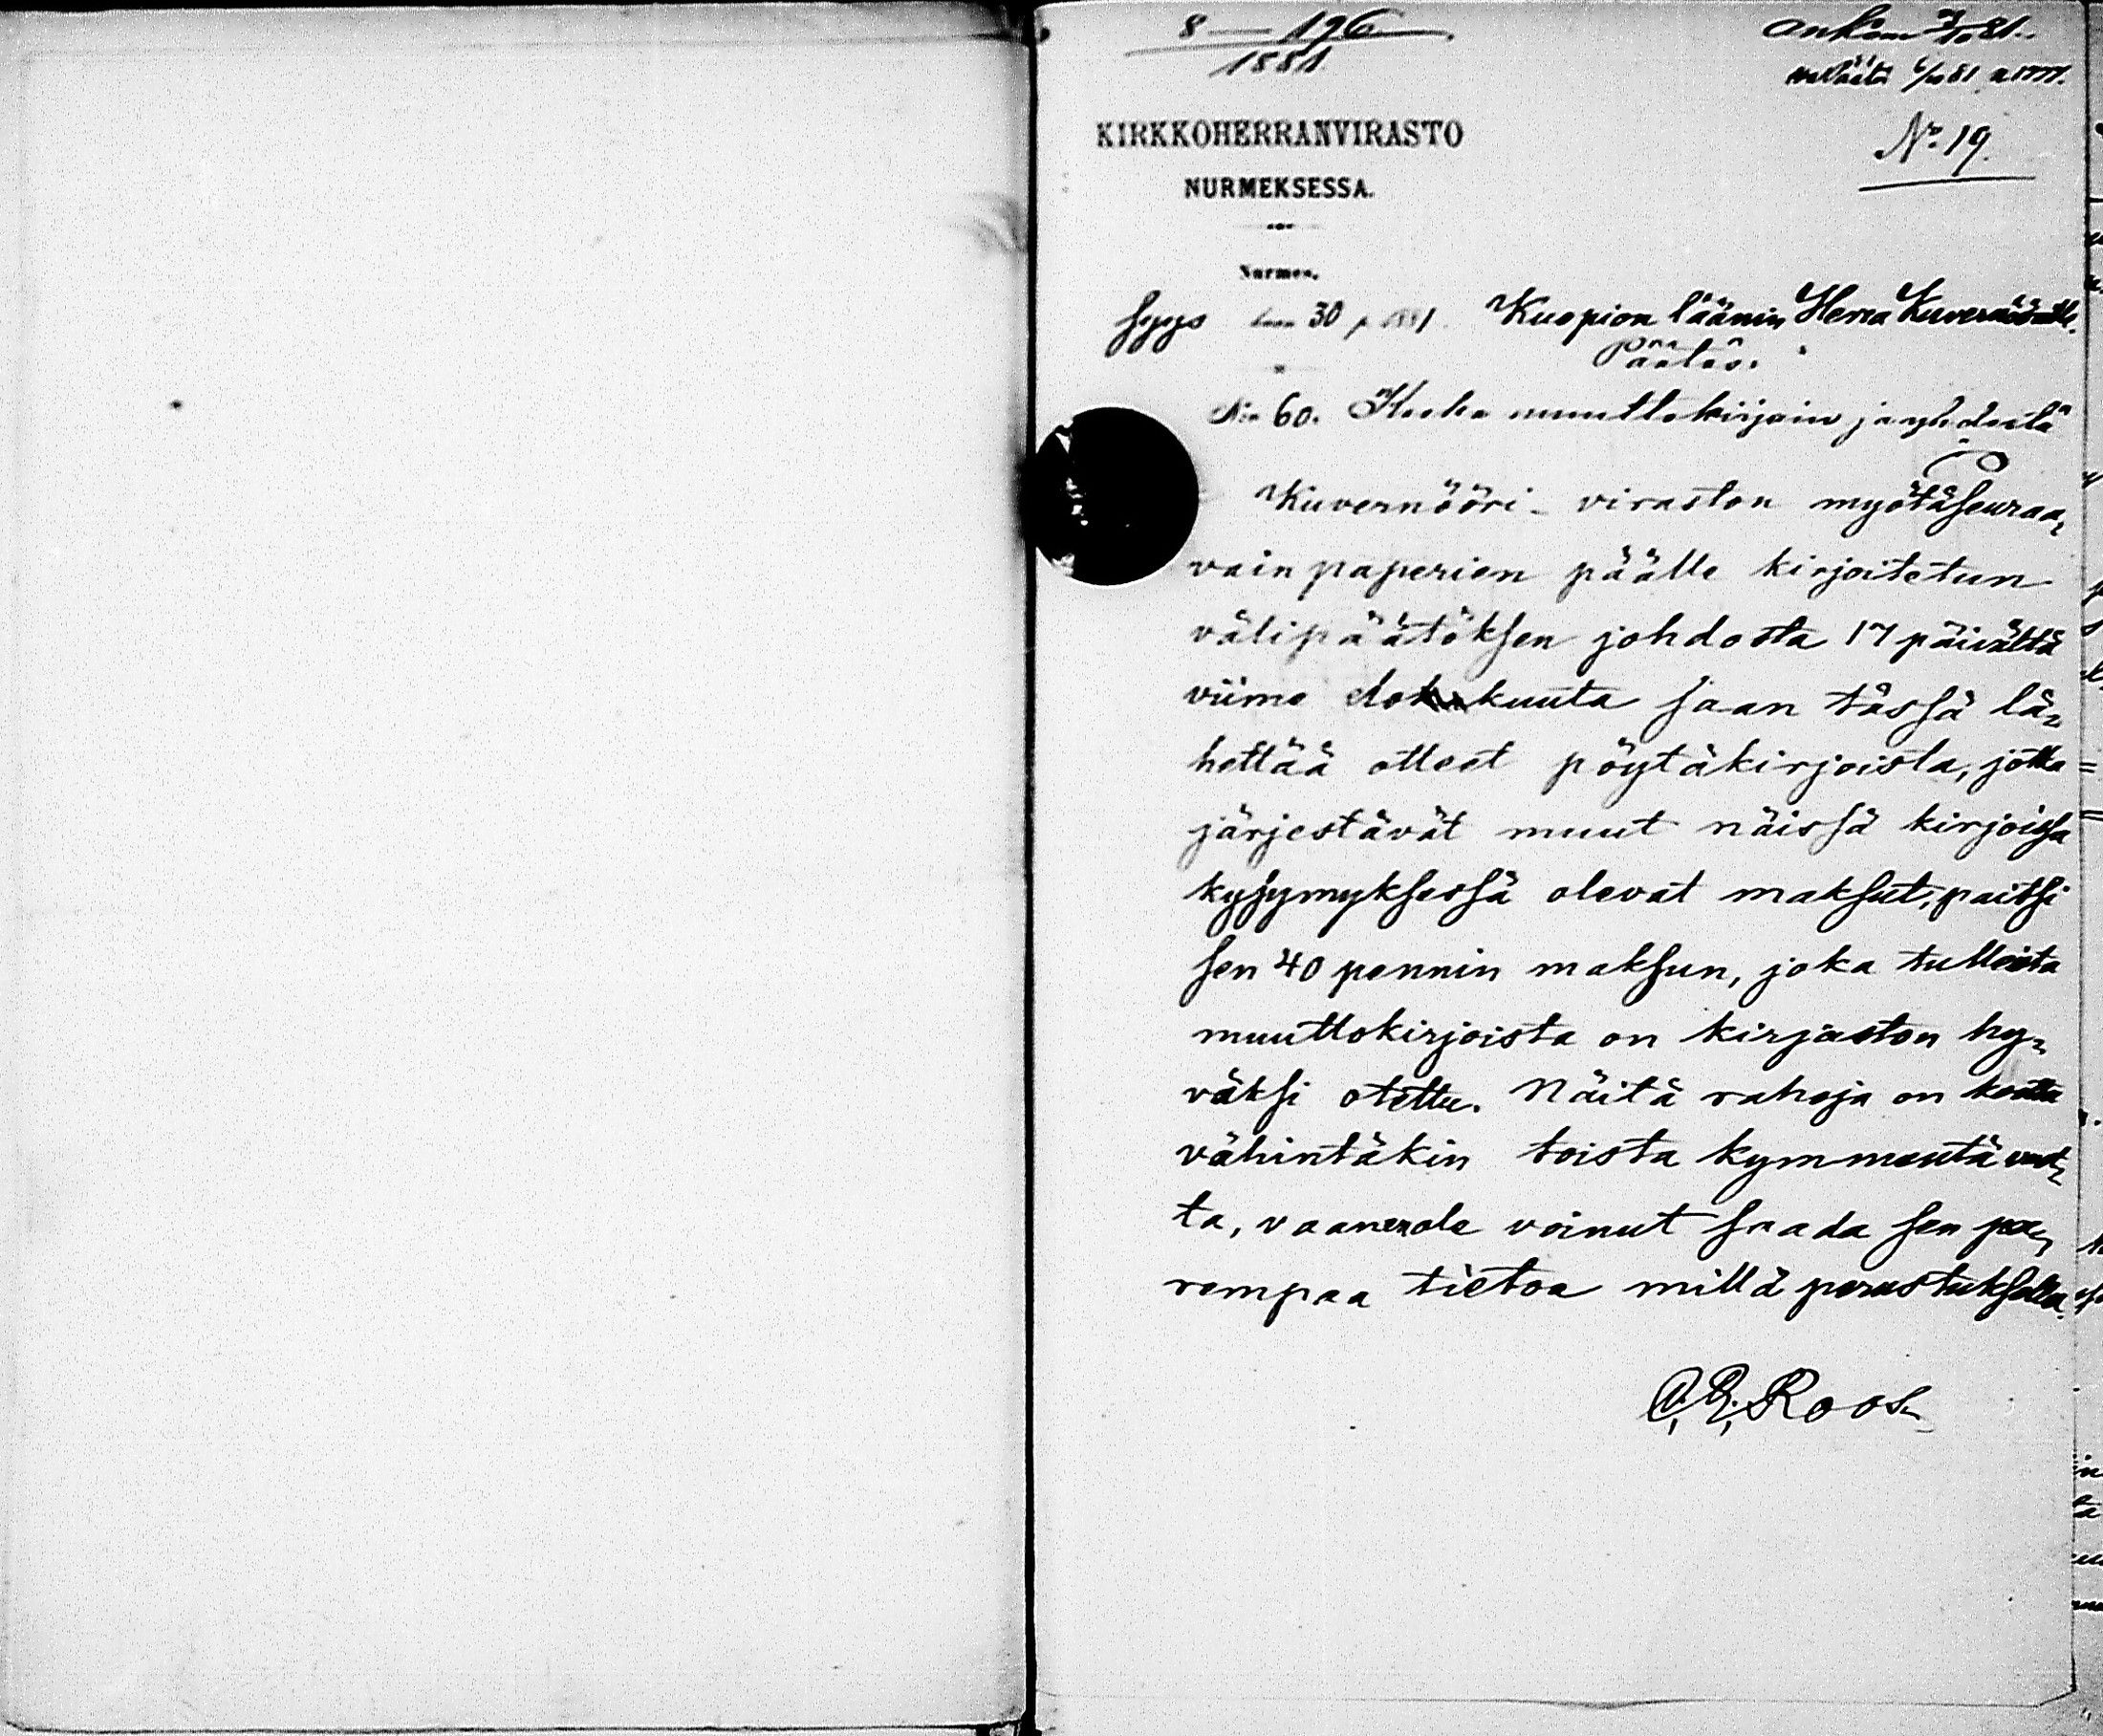 8 — 196
1881
ankom 7/10 81.
N:o 19.
KIRKKOHERRANVIRASTO
NURMEKSESSA.
Nurmes,
Syys kuun 30 p. 1881.
Kuopion läänin Herra Kuvernöörille.
Päätös.
N:o 60.
Koske muuttokirjain ja yhdestä
Kuvernööri-viraston myötäseuraa-
vain paperien päälle kirjoitetun
välipäätöksen johdosta 17 päivältä
viime elokuuta saan tässä lä-
hettää otteet pöytäkirjoista, jotka
järjestävät muut näissä kirjoissa
kysymyksessä olevat maksut, paitsi
sen 40 pennin maksun, joka tulleista
muuttokirjoista on kirjaston hy-
väksi otettu. Näitä rahoja on koottu
vähintäkin toista kymmentä vuot-
ta, vaan en ole voinut saada sen pa-
rempaa tietoa millä perustuksella.
Roos